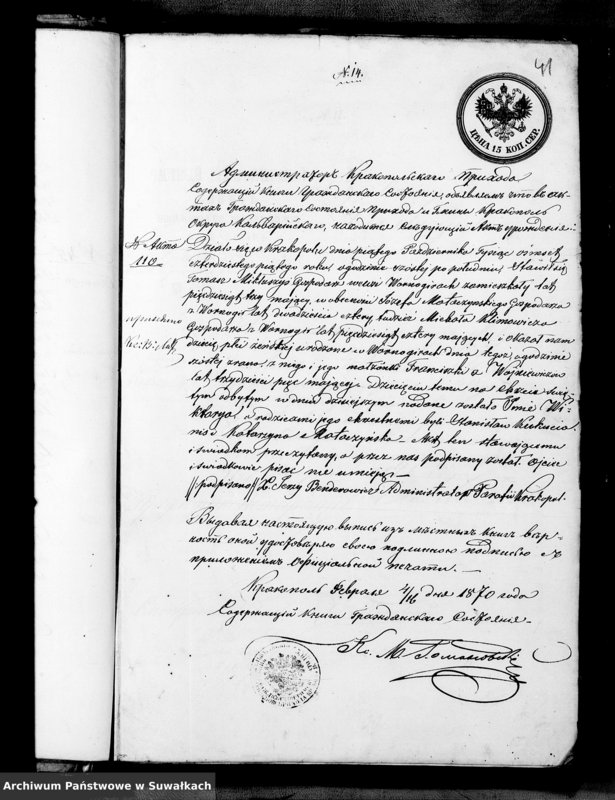 № 14.
41
ЦѢНА 15 КОП. СЕР.
Администраторъ Кракопольскаго Прихода
Содержащій Книги Гражданскаго Состоянія, объявляетъ что въ ак-
тахъ Гражданскаго Состоянія Прихода и Гмины Кракополь
Округа Кальварійскаго, находится слѣдующій Актъ урожденія:
№ Акта
110
Działo się w Krakopolu dnia piątego Października Tysiąc ośmset
czterdziestego piątego roku, o godzinie szóstej po południu, Stawił się
Tomasz Gospodarz we wsi Warnogirach zamieszkały lat
pięćdziesiąt mający, w obecności Józefa Matuszyńskiego Gospodarza
z Warnogir lat dwadzieścia cztery tudzież Michała Klimowicza
Gospodarza z Warnogir lat pięćdziesiąt cztery mających i okazał nam
dziecię płci żeńskiej urodzone w Warnogirach dnia tegoż o godzinie
szóstej z rana, z niego i jego małżonki Franciszki z
lat trzydzieści pięć mającej. Dziecięciu temu na Chrzcie Świę-
tym odbytym w dniu dzisiejszym nadane zostało Imie Wi-
ktorya, a rodzicami jego chrzestnemi byli Stanisław
nis i Katarzyna Matuszyńska. Akt ten stawającemu
i świadkom przeczytany, a przez nas podpisany został. Ojciec
i świadkowie pisać nie umieją.
//podpisano// X. Jerzy Benderowicz Administrator Parafii Krakopol.
Выдавая настоящую выпись изъ мѣстныхъ книгъ вѣр-
ность оной удостовѣряю своею подлинною подписью съ
приложеніемъ официальной печати.
Кракополь Февраля 4/16 дня 1870 года
Содержащій Книги Гражданскаго Состоянія
Кс. М.
Archiwum Państwowe w Suwałkach